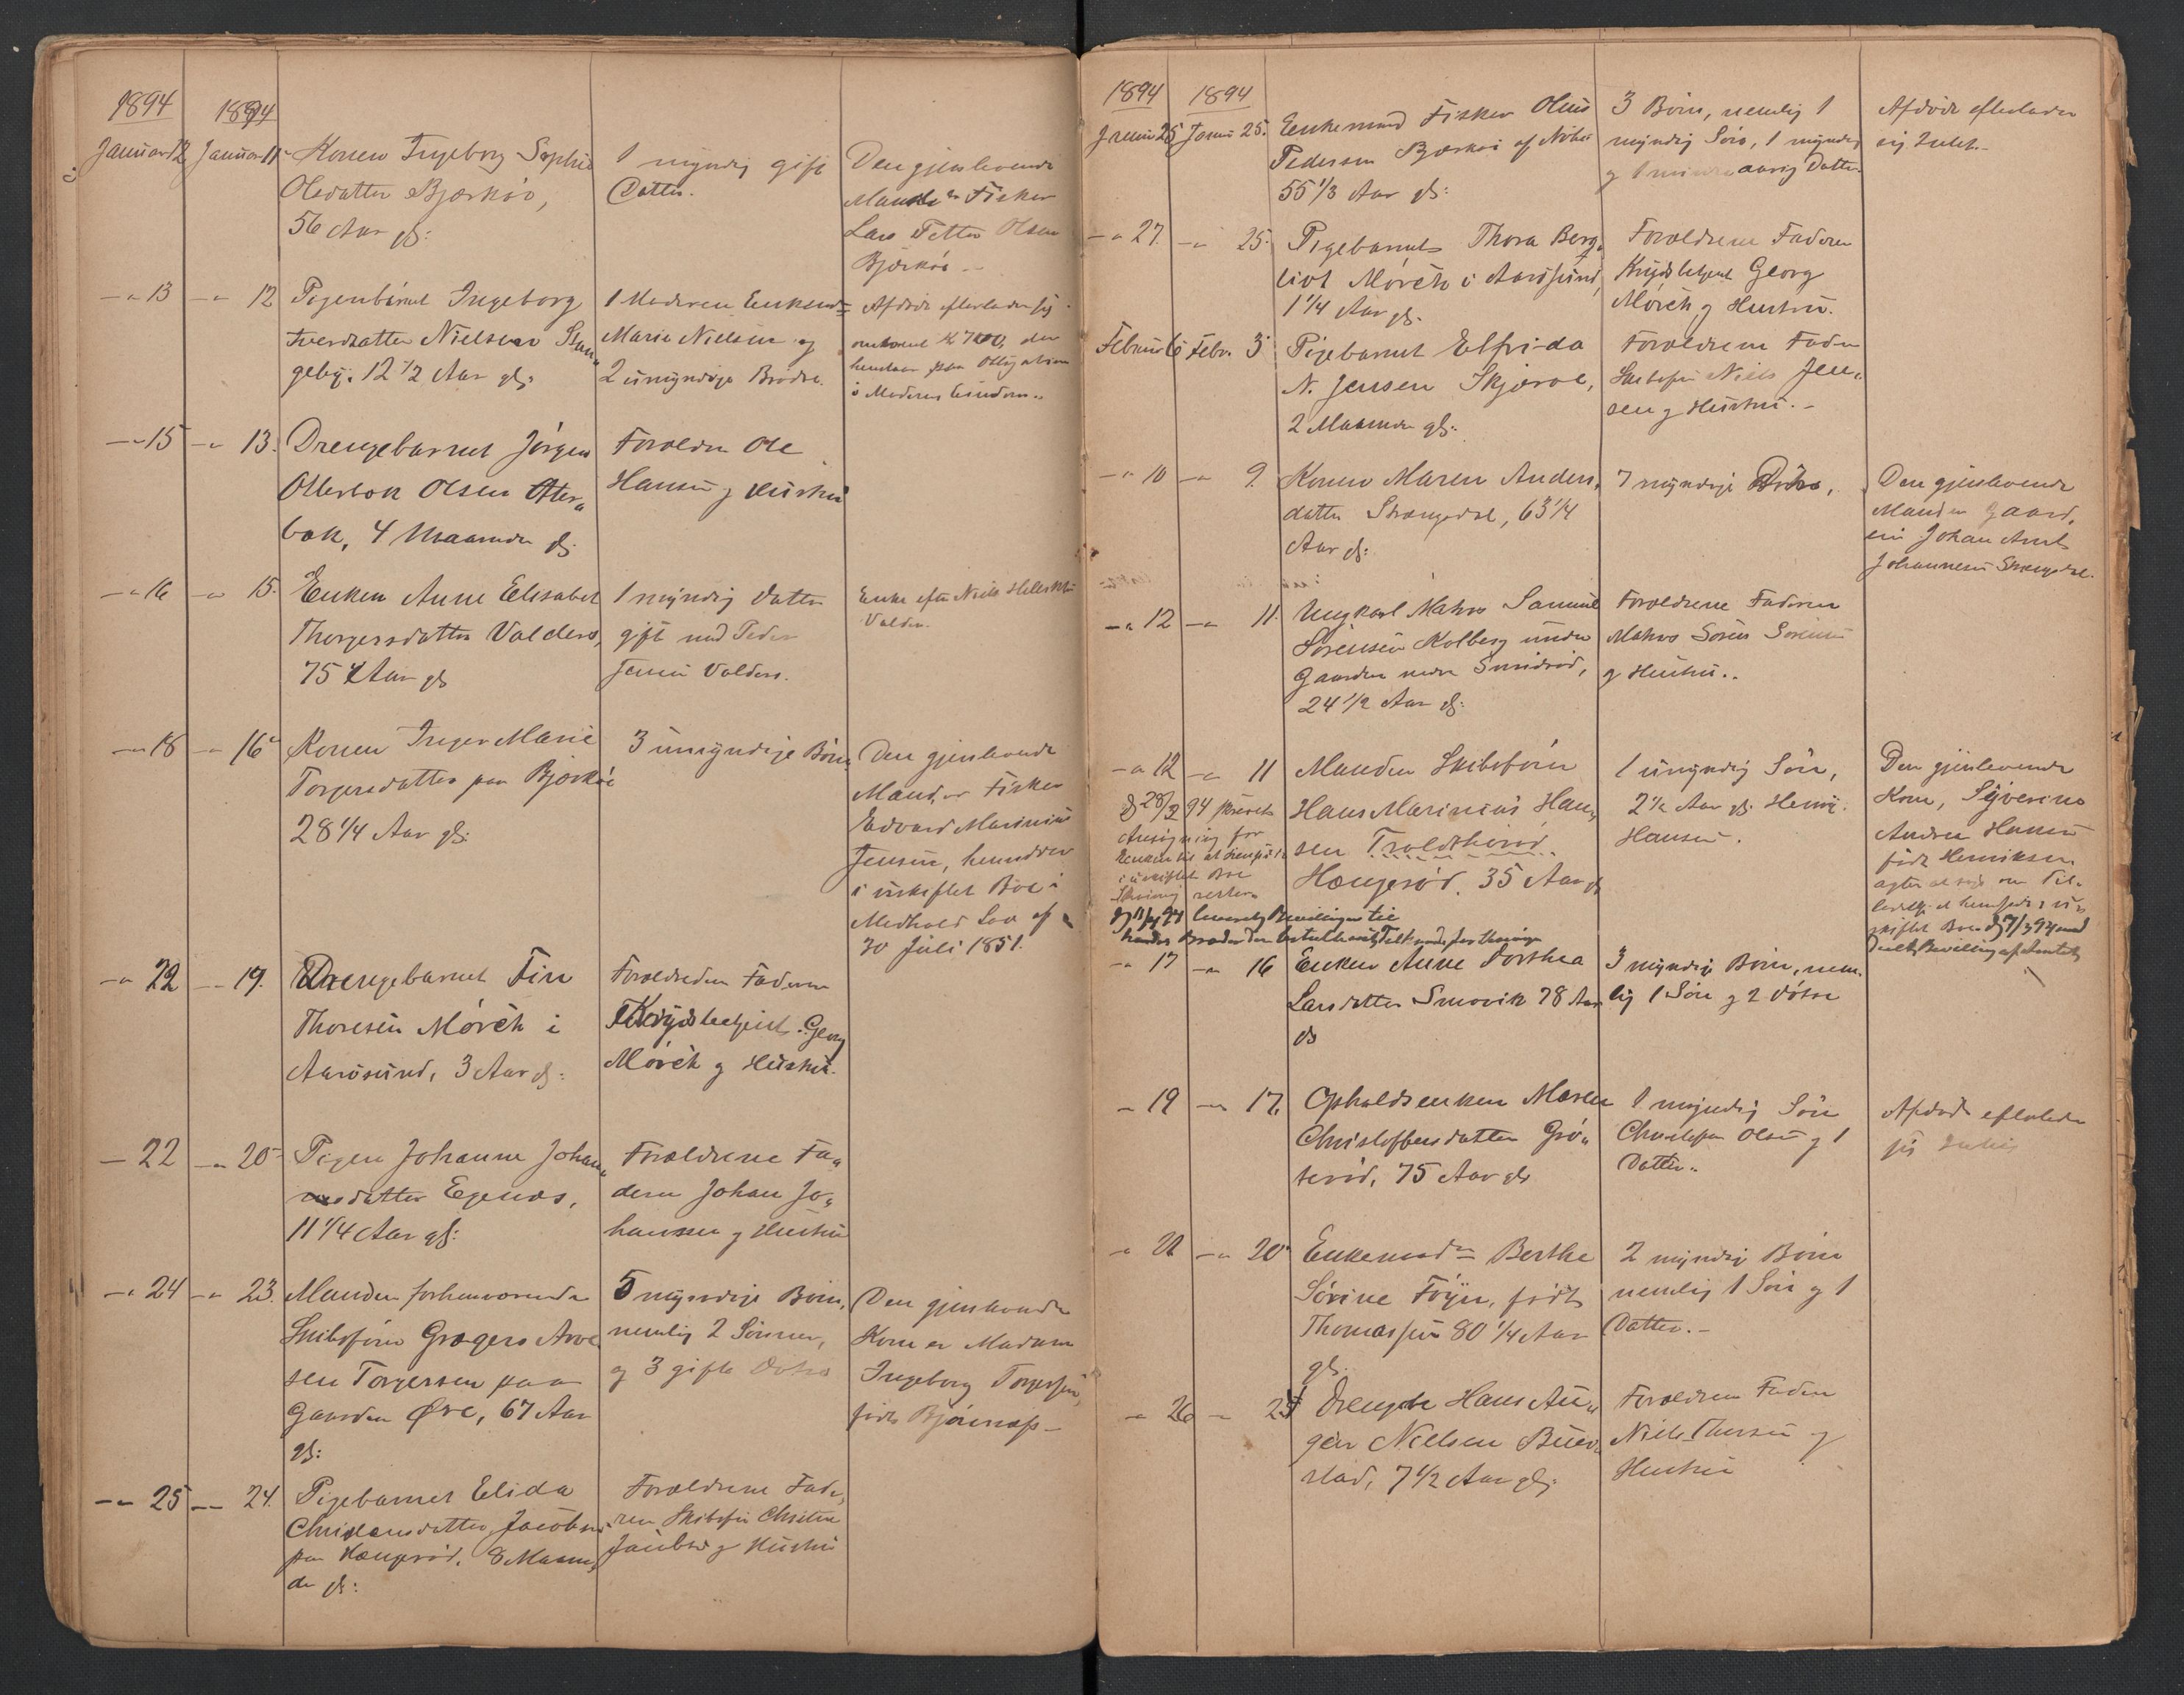 1894
1894
Januar 12 Januar 11 Konen Ingeborg Sophie
Olsdatter Bjerkøe,
56 Aar gl:
1 myndig gift
Datter.
Den gjenlevende
Mand er Fisker
Lars Petter Olsen
Bjerkøe
-"- 13 -"- 12 Pigenbarnet Ingeborg
Iversdatter Nielsen
geby. 12 1/2 Aar gl:
1 Moderen Enkemd
Marie Nielsen og
2 umyndige Brødre.
Afdøde efterlader sig
omtrent K 700, der
henstaar paa Obligation
i Moderens Eiendom.
-"- 15 -"- 13. Drengebarnet Jørgen
Otterbek Olsen Otter„
bek, 4 Maaneder gl.
Forældre Ole
Hansen og Hustru
-"- 16 -"- 15. Enken Anne Elisabet
Thorgersdatter Valders,
75 Aar gl
1 myndig datter
gift med Peder
Jensen Valders.
Enke efter Niels
Valders.
-"- 18 -"- 16 Konen Inger Marie
Torgersdatter paa Bjerkøe
28 1/4 Aar gl:
3 umyndige Børn,
Den gjenlevende
Mand, er Fisker
Edvard Marinius
Jensen, hensidder
i uskiftet Boe i
Medhold Lov af
30 Juli 1851.
-"- 22 -"- 19. Drengebarnet Finn
Thoresen Mørch i
Aarøsund, 3 Aar gl:
Forældrene Faderen
Krydsbetjent Georg
Mørch og Hustru.
- 22 -"- 20 Pigen Johanne Johan„
nesdatter Egenæs,
11 1/4 Aar gl:
Forældrene Fa„
deren Johan Jo„
hansen og Hustru
-"- 24 -"- 23. Manden forhenværende
Skibsfører Grægers Arve
sen Torgersen paa
Gaarden Øre, 67 Aar
gl:
5 myndige Børn,
nemlig 2 Sønner,
og 3 gifte Døtre
Den gjenlevende
Kone er Madam
Ingeborg Torgersen,
født Bjørnæss
-"- 25 -"- 24. Pigebarnet Elida
Christensdatter Jacobsen
paa Hængerød, 8 Maane„
der gl:
Forældrene Fade„
ren Skibsfører Christen
Jacobsen og Hustru
1894 1894
Januar 25 Januar 25. Enkemand Fisker Olaus
Pedersen Bjerkøe af Nøtterø
55 1/3 Aar gl:
3 Børn, nemlig 1
myndig Søn, 1 myndig
og 1 mindreaarig Datter
Afdøde efterlader
sig Intet.
-"- 27. -"- 25. Pigebarnet Thora Berg„
liot Mørch i Aarøsund,
1 1/4 Aar gl.
Forældrene Faderen
Krydsbetjent Georg
Mørch og Hustru.
Februar 6 Febr. 3 Pigebarnet Elfrida
N. Jensen Skjerve,
2 Maaneder gl.
Forældrene Fader
Skibsfører Niels Jen„
sen og Hustru.
-"- 10 -"- 9. Konen Maren Anders„
datter Strengsdal, 63 1/4
Aar gl:
7 myndige Børn,
Den gjenlevende
Mand er Gaard„
eier Johan Arnt
Johannesen Strengsdal.
-"- 12 -"- 11. Ungkarl Mathias Samuel
Sørensen Kolberg under
Gaarden nedre Smidsrød,
24 1/2 Aar gl:
Forældrene Faderen
Mathias Sørensen
og Hustru..
-"- 12 -"- 11 Manden Skibsfører
Hans Marinius Han„
sen Troldhaved
Hængerød. 35 Aar gl
1 umyndig Søn,
2 1/2 Aar gl: Henrik
Hansen.
Den gjenlevende
Kone, Sigverine
Andrea Hansen
født Henriksen
agter at søge om Til„
ladelse at hensidde i u„
skiftet Boe. d 7/3 94 med
delt Bevilling af Amtet.
d 28/2 94 skrevet
Ansøgning for
Enken til at hensidde
i uskiftet Boe
-"- 17 -"- 16 Enken Anne Dorthea
Larsdatter Smevik 78 Aar
gl
3 myndige Børn, nem„
lig 1 Søn og 2 døtre
- 19 -"- 17. Opholdsenken Maren
Christoffersdatter Grø„
terød, 75 Aar gl
1 myndig Søn
Christoffer Olsen og 1
Datter.
Afdøde efterlader
sig Intet
-"- 21 -"- 20 Enkemad Berthe
Sørine Føyn, født
Thomassen 80 1/4 Aar
gl.
2 myndige Børn
nemlig 1 Søn og 1
Datter.
-"- 26 - 25 Drengen Hans Au„
gust Nielsen Buer„
stad, 7 1/2 Aar gl.
Forældrene Faderen
Niels Thorsen og
Hustru